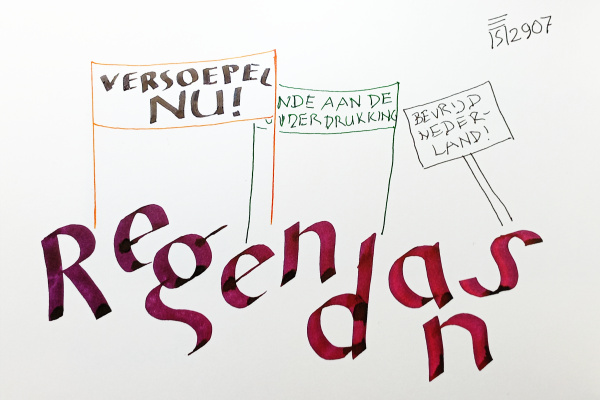 VERSOEPEL
NU!
NDE AAN DE
NDERDRUKKING
BEVRIJD
NEDER-
LAND!
Regendans